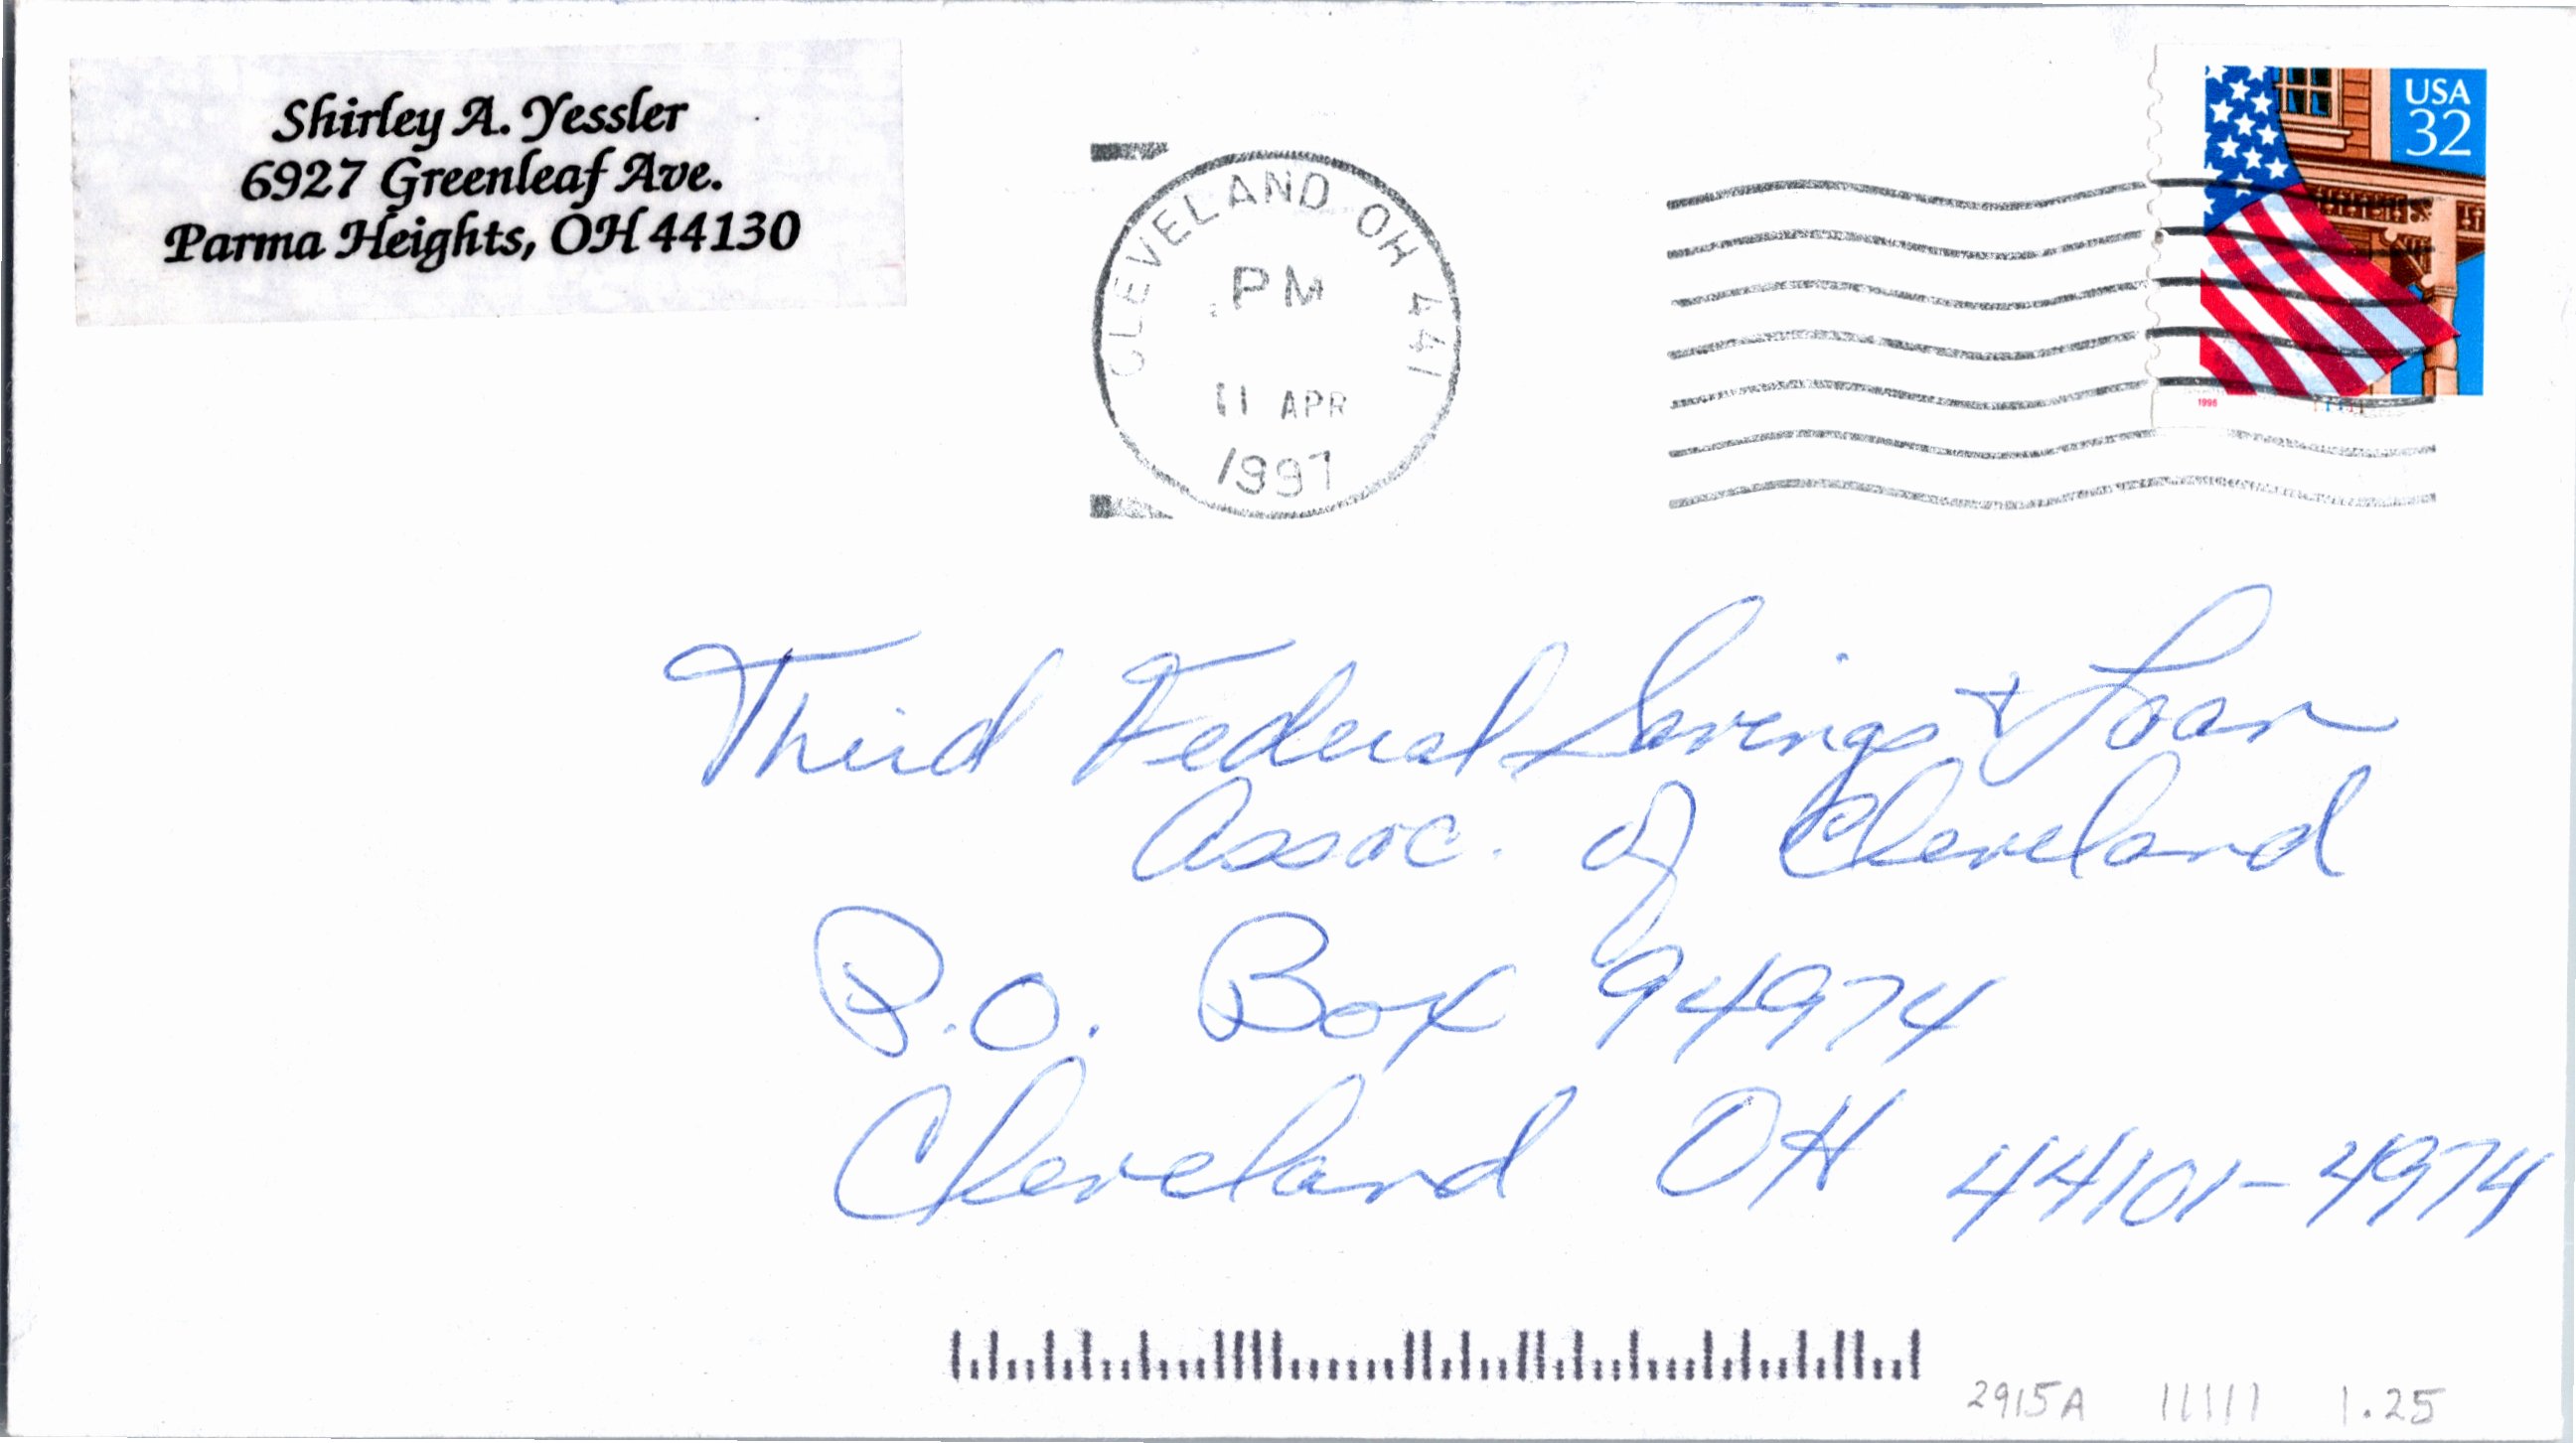 Shirley A. Yessler
6927 Greenleaf Ave.
Parma Heights, OH 44130
CLEVELAND OH 441
PM
11 APR
1997
USA
32
1996
11111
Third Federal Savings & Loan
Assoc. of Cleveland
P.O. Box 94974
Cleveland OH 44101-4974
2915A 11111 1.25